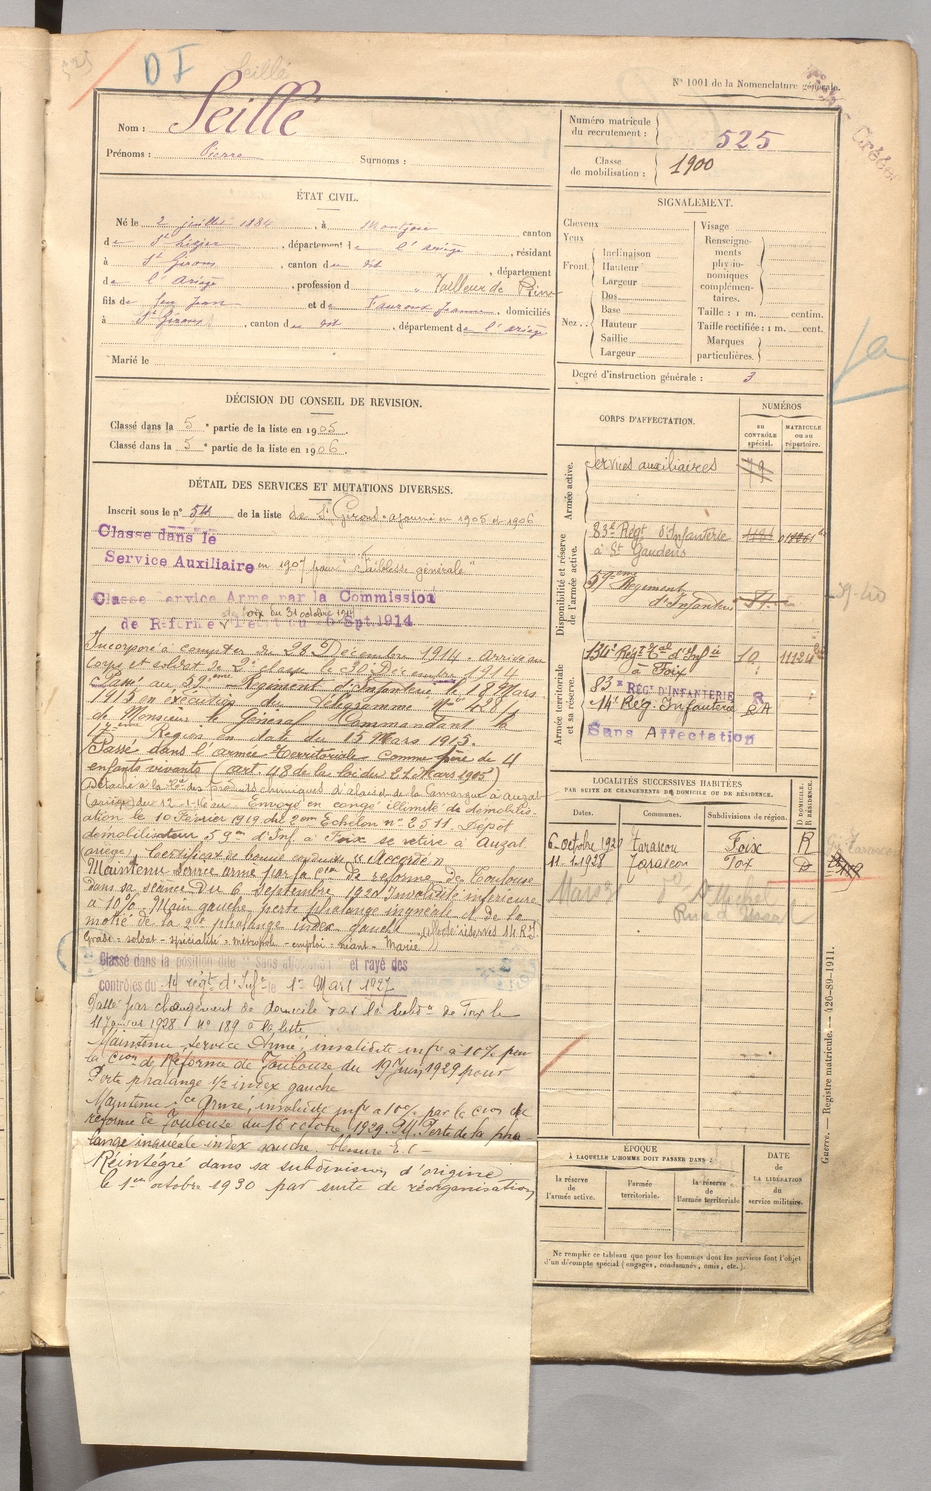 525
D I
Seillé
N° 1001 de la Nomenclature générale.
Nom : Seillé
Prénoms : Pierre Surnoms :
Numéro matricule du recrutement : 525
Classe de mobilisation : 1900
ÉTAT CIVIL.
Né le 2 juillet 1884, à Montjoie canton
de St Lizier, département de l'Ariège, résidant
à St Girons, canton du dit, département
de l'Ariège, profession d Tailleur de
fils de feu Jean et de Fauroux Jeanne, domiciliés
à St Girons, canton du dit, département de l'Ariège
Marié le
SIGNALEMENT.
Cheveux
Yeux
Front Inclinaison
Hauteur
Largeur
Nez Dos
Base
Hauteur
Saillie
Largeur
Visage
Renseignements physionomiques complémentaires.
Taille : 1 m. centim.
Taille rectifiée : 1 m. cent.
Marques particulières.
Degré d'instruction générale : 3
DÉCISION DU CONSEIL DE REVISION.
Classé dans la 5e partie de la liste en 1905.
Classé dans la 5e partie de la liste en 1906.
DÉTAIL DES SERVICES ET MUTATIONS DIVERSES.
Inscrit sous le n° 54 de la liste de St Girons - ajourné en 1905 et 1906
Classé dans le
Service Auxiliaire en 1907 pour "faiblesse générale"
Classé Service Armé par la Commission
de Réforme de Foix du 31 octobre 1914 Décret du 26 Sept. 1914
Incorporé à compter du 28 Décembre 1914. Arrivé au
Corps et soldat de 2e classe le 30 Décembre 1914
Passé au 59ème Régiment d'Infanterie le 18 Mars
1915 en exécution du Télégramme N° 428/
de Monsieur le Général Commandant la
17ème Région en date du 15 Mars 1915.
Passé dans l'armée Territoriale comme père de 4
enfants vivants (art. 48 de la loi du 21 Mars 1905)
Détaché à la Cie des Produits chimiques d'Alais et de la Camargue à Auzat
(Ariège) du 12 Envoyé en congé illimité de démobilis-
ation le 10 Février 1919 du 2em Echelon n° 2511. Dépôt
démobilisateur 59em d'Inf. à Foix se retire à Auzat
(Ariège). Certificat de bonne conduite "Accordé"
Maintenu service armé par la Cion de réforme de Toulouse
dans sa séance du 6 Septembre 1920 Invalidité inférieure
à 10%. Main gauche perte phalange inguéale et de la
moitié de la 2e phalange index gauche
Grade - soldat - spécialité - métropole - emploi - néant - Marié
Classé dans la position dite "Sans affectation" et rayé des
contrôles du 14 régt d'Infie le 1er Mars 1927
Passé par changement de domicile dans la subdon de Foix le
11 Janvier 1928 n° 189 de la liste
Maintenu Service Armé, invalidité infre à 10% par
la Cion de Réforme de Toulouse du 19 Juin 1929 pour
Perte phalange 1/2 index gauche
Maintenu Sce Armé, invalidité infre à 10% par la Cion de
réforme de Toulouse du 16 octobre 1929. Perte de la pha-
lange inguéale index gauche. blessure E.C-
Réintégré dans sa subdivision d'origine
le 1er octobre 1930 par suite de réorganisation
CORPS D'AFFECTATION.
NUMÉROS
au contrôle spécial.
matricule ou au répertoire.
Armée active.
Services auxiliaires
Disponibilité et réserve de l'armée active.
83e Régt d'Infanterie
à St Gaudens
59ème Régiment
d'Infanterie
Armée territoriale et sa réserve.
134e Régt Tal d'Infie 10 11124
à Foix
83e RÉGt D'INFANTERIE R
14e Rég. Infanterie
Sans Affectation
LOCALITÉS SUCCESSIVES HABITÉES
PAR SUITE DE CHANGEMENTS DE DOMICILE OU DE RÉSIDENCE.
Dates. Communes. Subdivisions de région. D DOMICILE. R RÉSIDENCE.
6 octobre 1920 Tarascon Foix R
11-1-1928 Tarascon Foix D
St Michel
Rue d'Ussat
ÉPOQUE
À LAQUELLE L'HOMME DOIT PASSER DANS :
la réserve de l'armée active.
l'armée territoriale.
la réserve de l'armée territoriale
DATE de LA LIBÉRATION du service militaire.
Ne remplir ce tableau que pour les hommes dont les services font l'objet
d'un décompte spécial (engagés, condamnés, omis, etc.).
Guerre. — Registre matricule. — 426-89-1911.